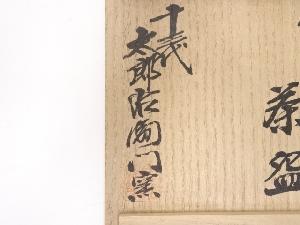 茶盌
十三代
太郎右衛門窯